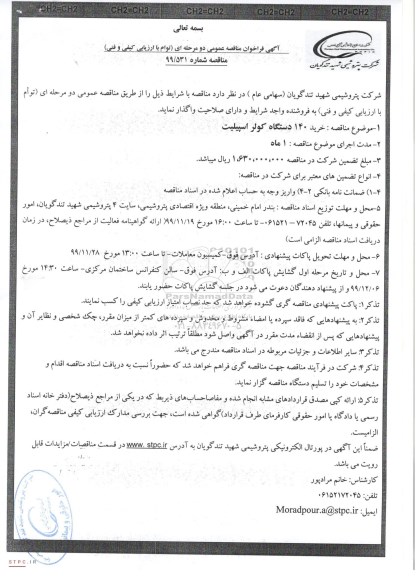 بسمه تعالی
آگهی فراخوان مناقصه عمومی دو مرحله ای (توام با ارزیابی کیفی و فنی)
مناقصه شماره ۹۹/۵۳۱
شرکت پتروشیمی شهید تندگویان
شرکت پتروشیمی شهید تندگویان (سهامی عام) در نظر دارد مناقصه با شرایط ذیل را از طریق مناقصه عمومی دو مرحله ای (توأم
با ارزیابی کیفی و فنی) به فروشنده واجد شرایط و دارای صلاحیت واگذار نماید.
۱-موضوع مناقصه : خرید ۱۴۰ دستگاه کولر اسپیلیت
۲-مدت اجرای موضوع مناقصه : ۱ ماه
۳- مبلغ تضمین شرکت در مناقصه ۱,۶۳۰,۰۰۰,۰۰۰ ریال میباشد.
۴- انواع تضمین های معتبر برای شرکت در مناقصه:
۱-۴) ضمانت نامه بانکی ۲-۴) واریز وجه به حساب اعلام شده در اسناد مناقصه
۵-محل و مهلت توزیع اسناد مناقصه : بندر امام خمینی، منطقه ویژه اقتصادی پتروشیمی، سایت ۴ پتروشیمی شهید تندگویان، امور
حقوقی و پیمانها، تلفن ۷۲۰۴۵-۰۶۱۵۲۱ تا ساعت ۱۶:۰۰ مورخ ۹۹/۱۱/۱۹( ارائه گواهینامه فعالیت از مراجع ذیصلاح، در زمان
دریافت اسناد مناقصه الزامی است)
۶- محل و مهلت تحویل پاکات پیشنهادی : آدرس فوق-کمیسیون معاملات- تا ساعت ۱۳:۰۰ مورخ ۹۹/۱۱/۲۸
۷- محل و تاریخ مرحله اول گشایش پاکات الف و ب: آدرس فوق- سالن کنفرانس ساختمان مرکزی- ساعت ۱۴:۳۰ مورخ
۹۹/۱۲/۰۶ و از پیشنهاد دهندگان دعوت می شود در جلسه گشایش پاکات حضور یابند.
تذکر۱: پاکت پیشنهادی مناقصه گری گشوده خواهد شد که حد نصاب امتیاز ارزیابی کیفی را کسب نمایند.
تذکر۲: به پیشنهادهایی که فاقد سپرده یا امضاء مشروط و مخدوش و سپرده های کمتر از میزان مقرر، چک شخصی و نظایر آن و
پیشنهادهایی که پس از انقضاء مدت مقرر در آگهی واصل شود مطلقاً ترتیب اثر داده نخواهد شد.
تذکر۳: سایر اطلاعات و جزئیات مربوطه در اسناد مناقصه مندرج می باشد.
تذکر۴: شرکت در فرآیند مناقصه جهت مناقصه گری فراهم خواهد شد که حضوراً نسبت به دریافت اسناد مناقصه اقدام و
مشخصات خود را تسلیم دستگاه مناقصه گزار نماید.
تذکر۵: ارائه کپی مصدق قراردادهای مشابه انجام شده و مفاصاحساب‌های ذیربط که در یکی از مراجع ذیصلاح(دفتر خانه اسناد
رسمی یا دادگاه یا امور حقوقی کارفرمای طرف قرارداد)گواهی شده است، جهت بررسی مدارک ارزیابی کیفی مناقصه‌گران،
الزامیست.
ضمناً این آگهی در پورتال الکترونیکی پتروشیمی شهید تندگویان به آدرس www.stpc.ir در قسمت مناقصات/مزایدات قابل
رویت می باشد.
کارشناس: خانم مرادپور
تلفن: ۰۶۱۵۲۱۷۲۰۴۵
ایمیل: Moradpour.a@stpc.ir
STPC.IR